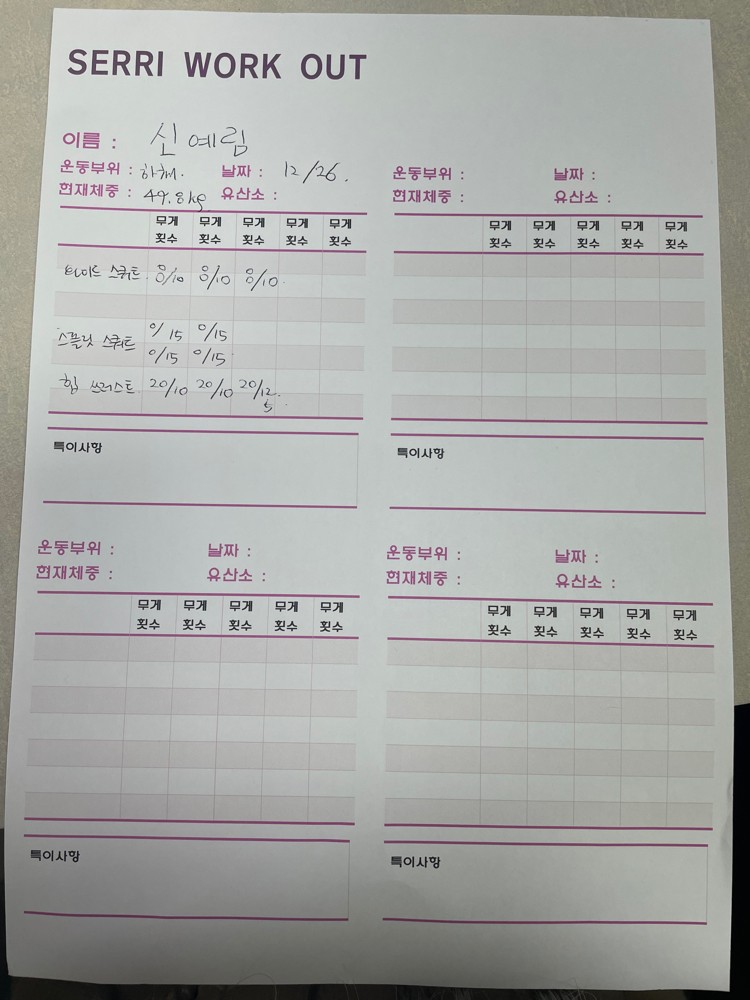 SERRI WORK OUT
이름 : 신예림
운동부위 : 하체. 날짜 : 12/26.
현재체중 : 49.8kg 유산소 :
무게 무게 무게 무게 무게
횟수 횟수 횟수 횟수 횟수
와이드 스쿼트. 8/10 8/10 8/10.
스플릿 스쿼트 0/15 0/15
0/15 0/15
힙 쓰러스트 20/10 20/10 20/12.
특이사항
운동부위 : 날짜 :
현재체중 : 유산소 :
무게 무게 무게 무게 무게
횟수 횟수 횟수 횟수 횟수
특이사항
운동부위 : 날짜 :
현재체중 : 유산소 :
무게 무게 무게 무게 무게
횟수 횟수 횟수 횟수 횟수
특이사항
운동부위 : 날짜 :
현재체중 : 유산소 :
무게 무게 무게 무게 무게
횟수 횟수 횟수 횟수 횟수
특이사항